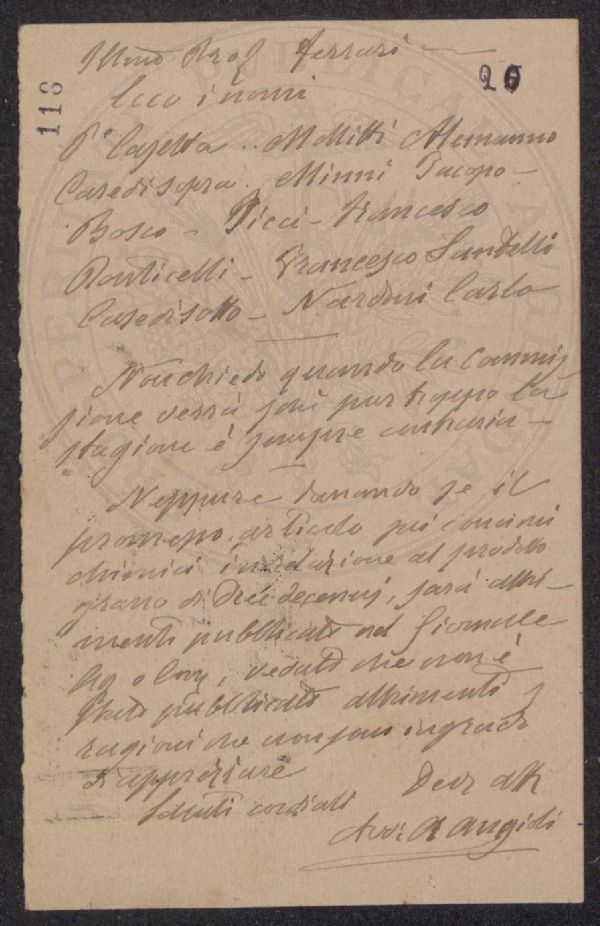 Illmo Prof Ferrari
116
20
Ecco i nomi
Pe Casetta .. Molitti Alemanno
Casedisopra. Minni Jacopo -
Bosco - Picci - Francesco
Ponticelli - Francesco Santelli
Casedisotto - Nardoni Carlo
Non chiedo quando la Commis
sione verrà poiché purtroppo la
stagione è sempre contraria -
Neppure domando se il
promesso articolo sui concimi
chimici in relazione al prodotto
grano di decennj, sarà altri-
menti pubblicato nel Giornale
Ag e Com, veduto che non è
stato pubblicato altrimenti
ragioni che non sono in grado
di apprezzare
Dev
Saluti cordiali
A Angioli